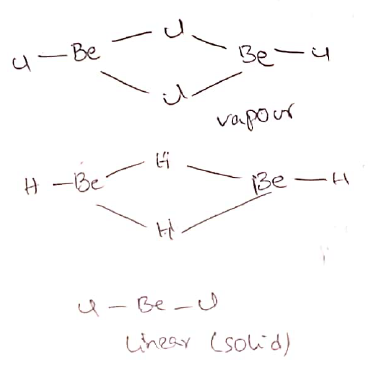 Cl
Cl — Be Be — Cl
Cl
vapour
H
H — Be Be — H
H
Cl — Be — Cl
Linear (solid)